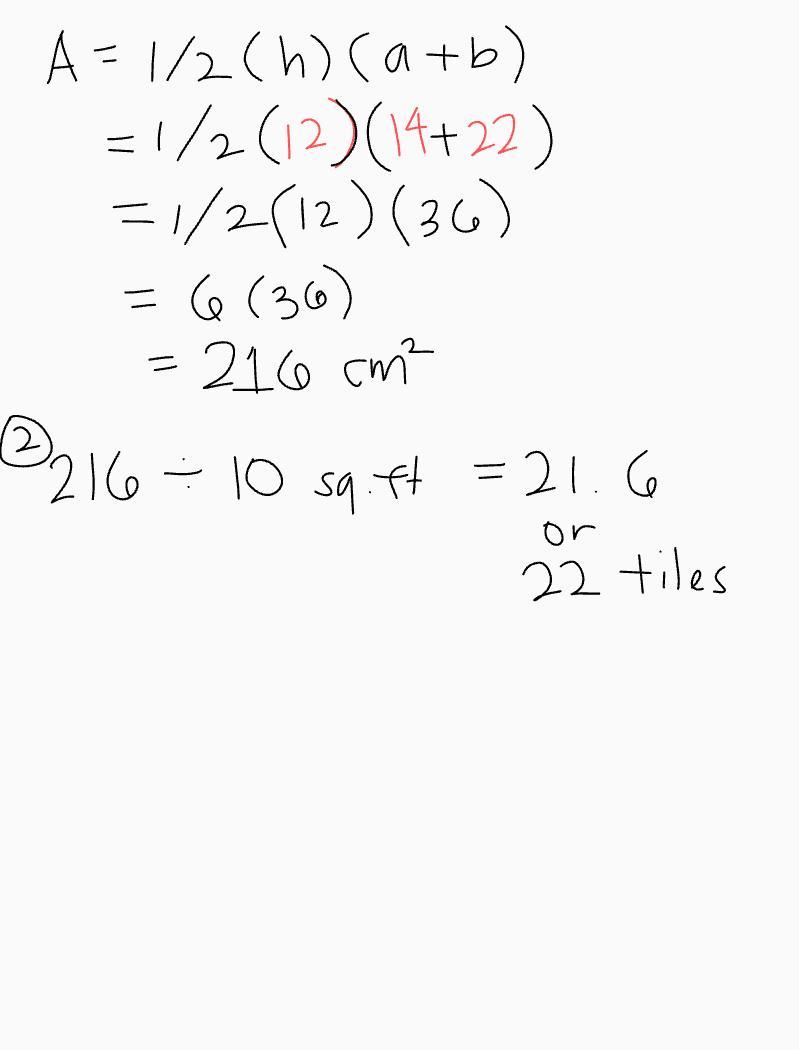 A = 1/2(h)(a+b)
= 1/2(12)(14+22)
= 1/2(12)(36)
= 6(36)
= 216 cm²
② 216 ÷ 10 sq.ft = 21.6
or
22 tiles